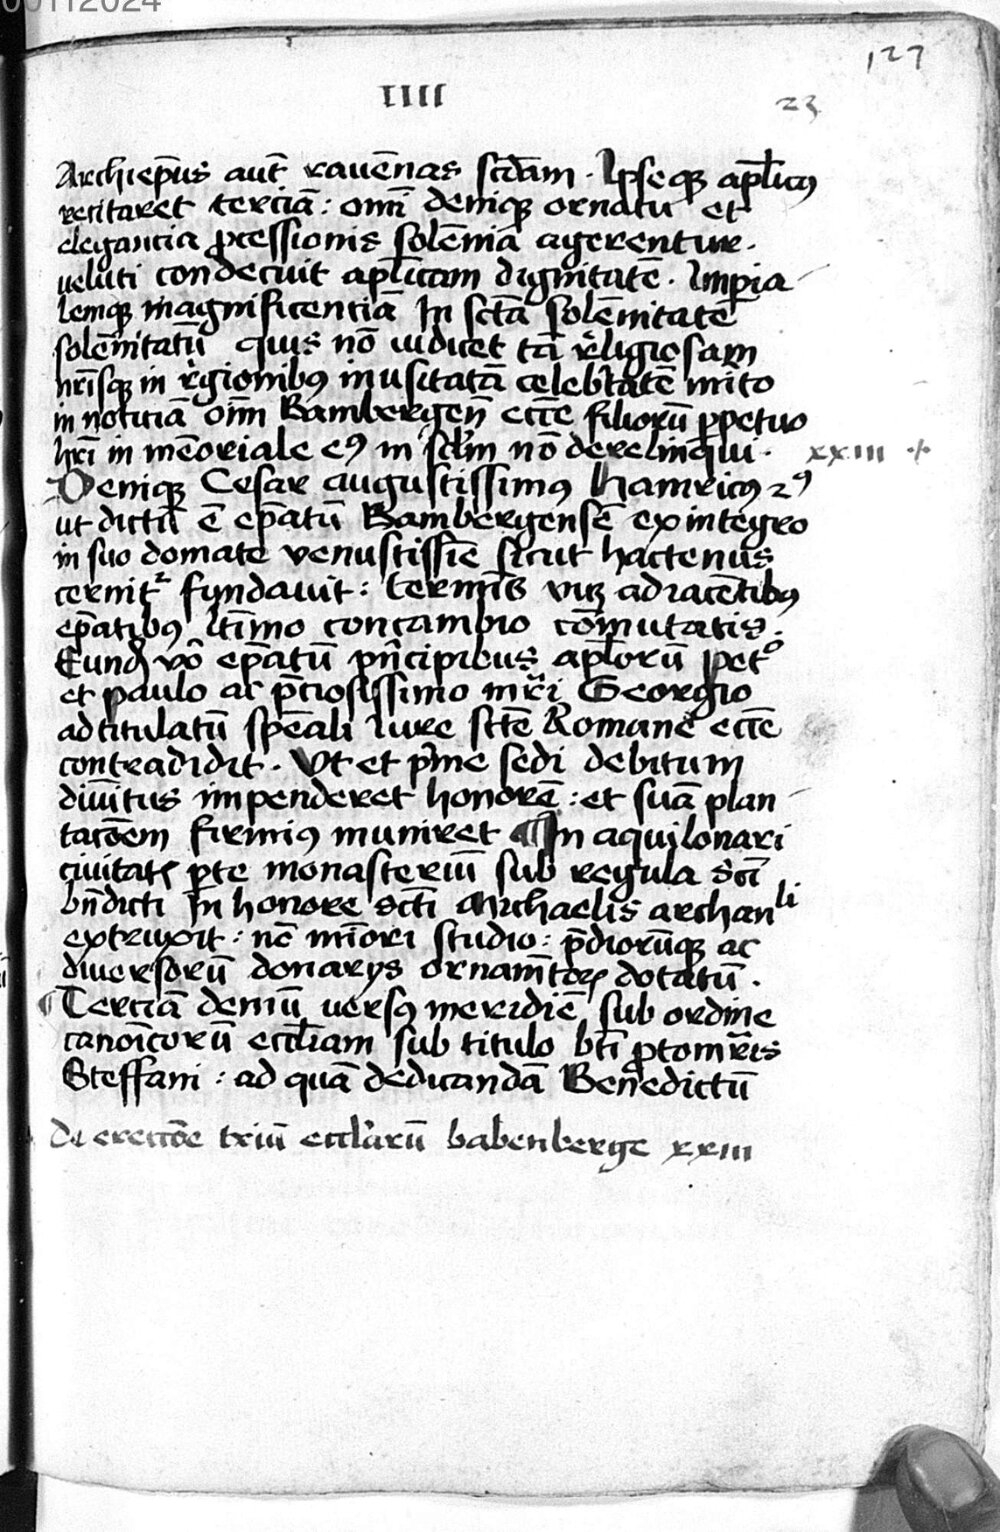 00112024
127
IIII
23
Archiep̄us aut̄ rauēnas scd̄am. Ipseqꝫ apl̄icꝰ
recitaret terciā: om̄i deniqꝫ ornatu et
elegancia ꝓcessionis solēnia agerentur.
veluti condecuit apl̄icam dignitatē. Impia
lemqꝫ magnificenciā In sctā solēnitatē
solēnitatū quis nō iudicet tā religiosam
nr̄isqꝫ in regionibꝰ inusitatā celebtatē mito
in noticiā om̄m Bambergen̄ eccē filiorū ꝑpetuo
hr̄i in mēoriale eꝰ in scl̄m nō derelinqui. xxiii
Deniqꝫ Cesar augustissimꝰ hainricꝰ 2ꝰ
ut dictū ē ep̄atū Bambergensē ex integro
in suo domate venustissīe sicut hactenus
cernit᷑ fundauit: termīs viꝫ adiacētibꝰ
ep̄atibꝰ ltīmo concambio cōmutatis.
Eund̄ vō ep̄atū pn̄cipibus apl̄orū pet⁰
et paulo ac p̄ciosissimo mr̄i Georgio
adtitulatū spēali Iure sctē Romane eccē
contradidit. Vt et pͥme sedi debitum
diuīitus impenderet honorē: et suā plan
tacōem firmiꝰ muniret ¶ In aquilonari
ciuitatꝭ ꝑte monasteriū sub regula scī
bn̄dicti In honore sctī Michaelis archanli
extruxit: nēc mīori studio: p̄diorūqꝫ ac
diuersorū donarys ornamn̄torꝭ dotatū.
¶ Terciā demū versꝰ meridiē sub ordine
canoīcorū eccl̄iam sub titulo btī ꝓtomr̄is
Steffani: ad quā dedicandā Benedictū
De ereccōe triū eccl̄iarū babenberge xxiii